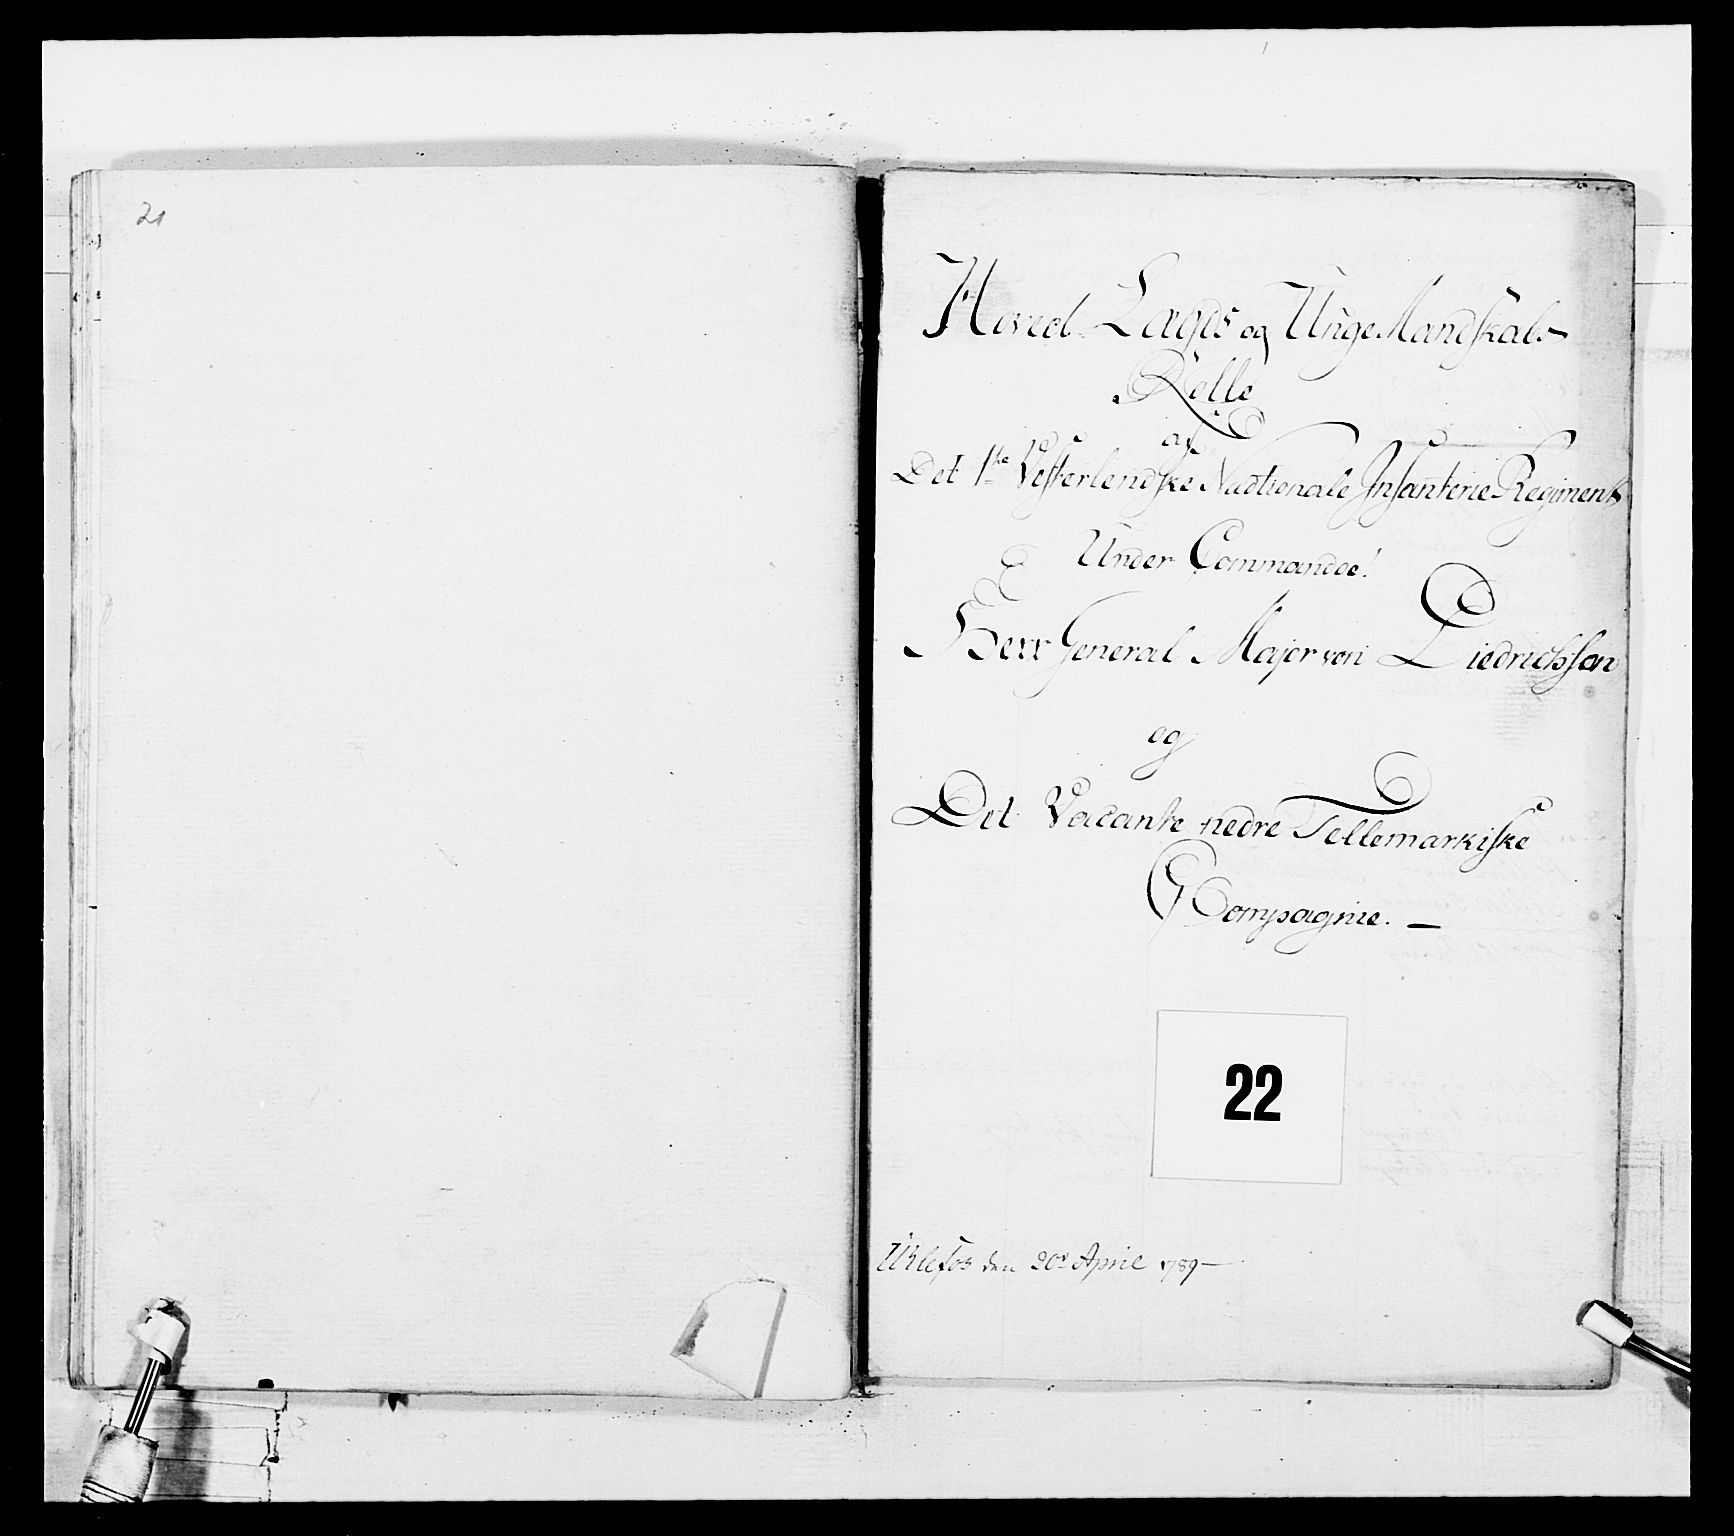 21
Hoved Lægds og Unge Mandskabs
Rolle
af
Det 1te Vesterlendske Nadtionale Infanterie Regiment
Under Commandoe!
Herr General Major von Diedrichsson
og
Det Vacante nedre Tellemarkiske
Compagnie. —
22
Ulefos den 20de April 1789 —